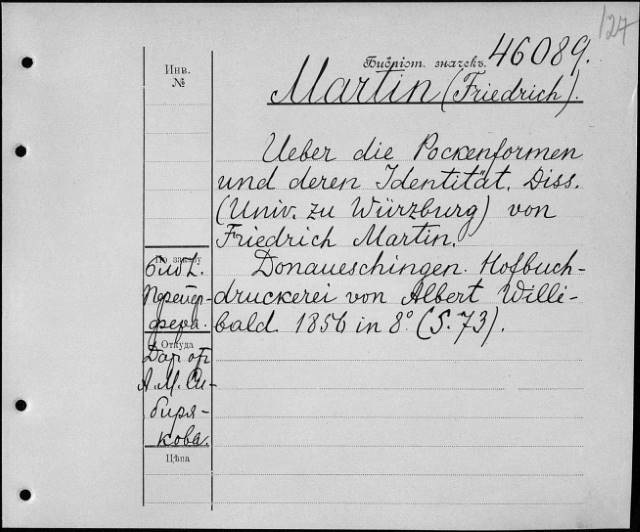 127
Библіот. значекъ. 46089.
Инв.
№
Martin (Friedrich).
Ueber die Pockenformen
und deren Identität. Diss.
(Univ. zu Würzburg) von
Friedrich Martin.
Donaueschingen. Hofbuch-
druckerei von Albert Willi-
bald. 1856 in 8° (S. 73).
по заказу
библ.
Пфейф-
фера.
Откуда
Дар от
А. М. Си-
биря-
кова.
Цѣна